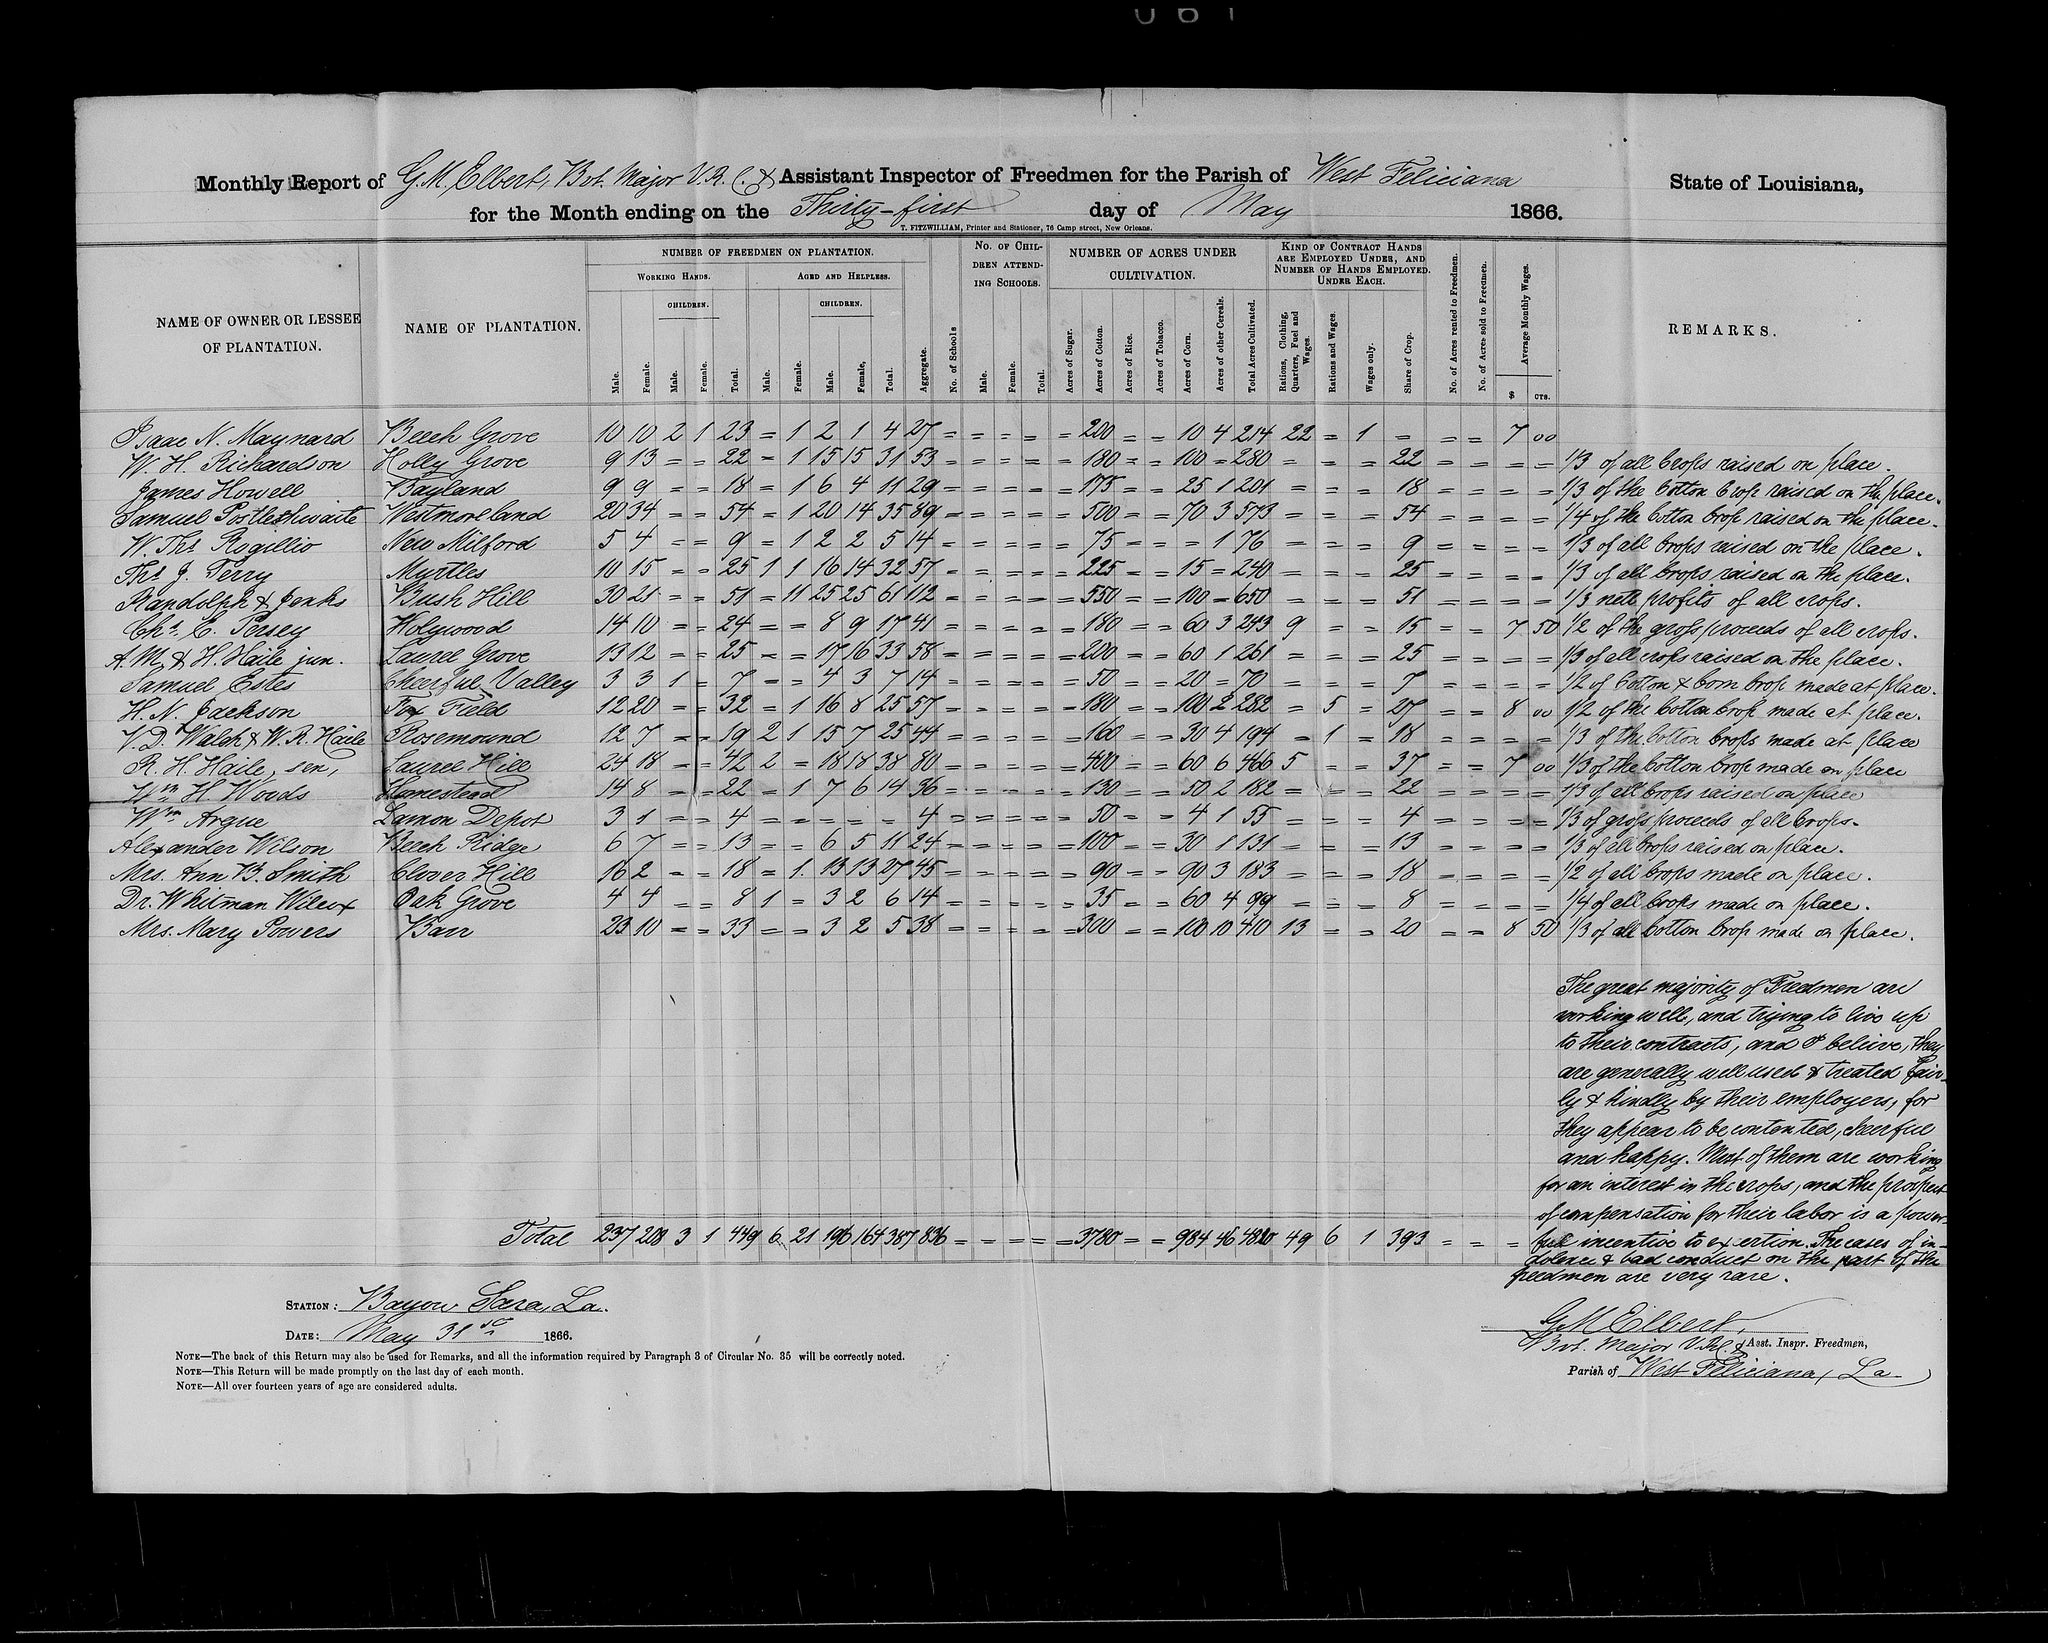 Monthly Report of G. M. Elbert, Bvt. Major V. R. C. & Assistant Inspector of Freedmen for the Parish of West Feliciana State of Louisiana,
for the Month ending on the Thirty-first day of May 1866.
T. FITZWILLIAM, Printer and Stationer, 76 Camp street, New Orleans.
NAME OF OWNER OR LESSEE OF PLANTATION.
NAME OF PLANTATION.
NUMBER OF FREEDMEN ON PLANTATION.
WORKING HANDS.
AGED AND HELPLESS.
CHILDREN.
CHILDREN.
Male. Female. Male. Female. Total. Male. Female. Male. Female, Total. Aggregate.
No. of Schools
NO. OF CHILDREN ATTENDING SCHOOLS.
Male. Female. Total.
NUMBER OF ACRES UNDER CULTIVATION.
Acres of Sugar. Acres of Cotton. Acres of Rice. Acres of Tobacco. Acres of Corn. Acres of other Cereals. Total Acres Cultivated.
KIND OF CONTRACT HANDS ARE EMPLOYED UNDER, AND NUMBER OF HANDS EMPLOYED UNDER EACH.
Rations, Clothing, Quarters, Fuel and Wages. Rations and Wages. Wages only. Share of Crop.
No. of Acres rented to Freedmen.
No. of Acres sold to Freedmen.
Average Monthly Wages.
$ CTS.
REMARKS.
Isaac N. Maynard Beech Grove 10 10 2 1 23 = 1 2 1 4 27 = = = = = 200 = = 10 4 214 22 = 1 = = = 7 00
W. H. Richardson Holly Grove 9 13 = = 22 = 1 15 15 31 53 = = = = = 180 = = 100 = 280 = = = 22 = = = = 1/3 of all Crops raised on place.
James Howell Wayland 9 9 = = 18 = 1 6 4 11 29 = = = = = 175 = = 25 1 201 = = = 18 = = = = 1/3 of the Cotton Crop raised on the place.
Samuel Postlethwaite Westmoreland 20 34 = = 54 = 1 20 14 35 89 = = = = = 500 = = 70 3 573 = = = 54 = = = = 1/4 of the Cotton Crop raised on the place.
W. Ths. Rogillio New Milford 5 4 = = 9 = 1 2 2 5 14 = = = = = 75 = = = 1 76 = = = 9 = = = = 1/3 of all Crops raised on the place.
Ths. J. Terry Myrtles 10 15 = = 25 1 1 16 14 32 57 = = = = = 225 = = 15 = 240 = = = 25 = = = = 1/3 of all Crops raised on the place.
Randolph & Jenks Bush Hill 30 21 = = 51 = 11 25 25 61 112 = = = = = 550 = = 100 = 650 = = = 51 = = = = 1/3 nett profits of all crops.
Chs. C. Persey Holywood 14 10 = = 24 = = 8 9 17 41 = = = = = 180 = = 60 3 243 9 = = 15 = = 7 50 1/2 of the gross proceeds of all crops.
A. M. & H. Haile jun. Laurel Grove 13 12 = = 25 = = 17 16 33 58 = = = = = 200 = = 60 1 261 = = = 25 = = = = 1/3 of all crops raised on the place.
Samuel Estes Cheerful Valley 3 3 1 = 7 = = 4 3 7 14 = = = = = 50 = = 20 = 70 = = = 7 = = = = 1/2 of Cotton & Corn Crop made at place.
H. N. Jackson Fox Field 12 20 = = 32 = 1 16 8 25 57 = = = = = 180 = = 100 2 282 = 5 = 27 = = 8 00 1/2 of the Cotton Crop made at place.
V. D. Walsh & W. R. Haile Rosemound 12 7 = = 19 2 1 15 7 25 44 = = = = = 160 = = 30 4 194 = 1 = 18 = = = = 1/3 of the Cotton Crops made at place
R. H. Haile, sen, Laurel Hill 24 18 = = 42 2 = 18 18 38 80 = = = = = 400 = = 60 6 466 5 = = 37 = = 7 00 1/3 of the Cotton Crop made on place
Wm. H. Woods Homestead 14 8 = = 22 = 1 7 6 14 36 = = = = = 130 = = 50 2 182 = = = 22 = = = = 1/3 of all Crops raised on place
Wm Argue Lamon Depot 3 1 = = 4 = = = = = 4 = = = = = 50 = = 4 1 55 = = = 4 = = = = 1/3 of gross proceeds of all Crops.
Alexander Wilson Beech Ridge 6 7 = = 13 = = 6 5 11 24 = = = = = 100 = = 30 1 131 = = = 13 = = = = 1/3 of all Crops raised on place.
Mrs. Ann B. Smith Clover Hill 16 2 = = 18 = 1. 13 13 27 45 = = = = = 90 = = 90 3 183 = = = 18 = = = = 1/2 of all Crops made on place.
Dr. Whitman Wilcox Oak Grove 4 4 = = 8 1 = 3 2 6 14 = = = = = 35 = = 60 4 99 = = = 8 = = = = 1/4 of all Crops made on place.
Mrs. Mary Powers Barr 23 10 = = 33 = = 3 2 5 38 = = = = = 300 = = 100 10 410 13 = = 20 = = 8 50 1/3 of all Cotton Crop made on place.
The great majority of Freedmen are
working well, and trying to live up
to their contracts, and I believe, they
are generally well used & treated fair-
ly & kindly by their employers, for
they appear to be contented, cheerful
and happy. Most of them are working
for an interest in the crops, and the prospect
of compensation for their labor is a power-
ful incentive to exertion. The cases of in-
dolence & bad conduct on the part of the
freedmen are very rare.
Total 237 208 3 1 449 6 21 196 164 387 836 = = = = = 3780 = = 984 46 4810 49 6 1 393 = = =
STATION: Bayou Sara, La.
DATE: May 31st 1866.
NOTE—The back of this Return may also be used for Remarks, and all the information required by Paragraph 3 of Circular No. 35 will be correctly noted.
NOTE—This Return will be made promptly on the last day of each month.
NOTE—All over fourteen years of age are considered adults.
G M Elbert,
Bvt. Major V.R.C. & Asst. Inspr. Freedmen,
Parish of West Feliciana, La.